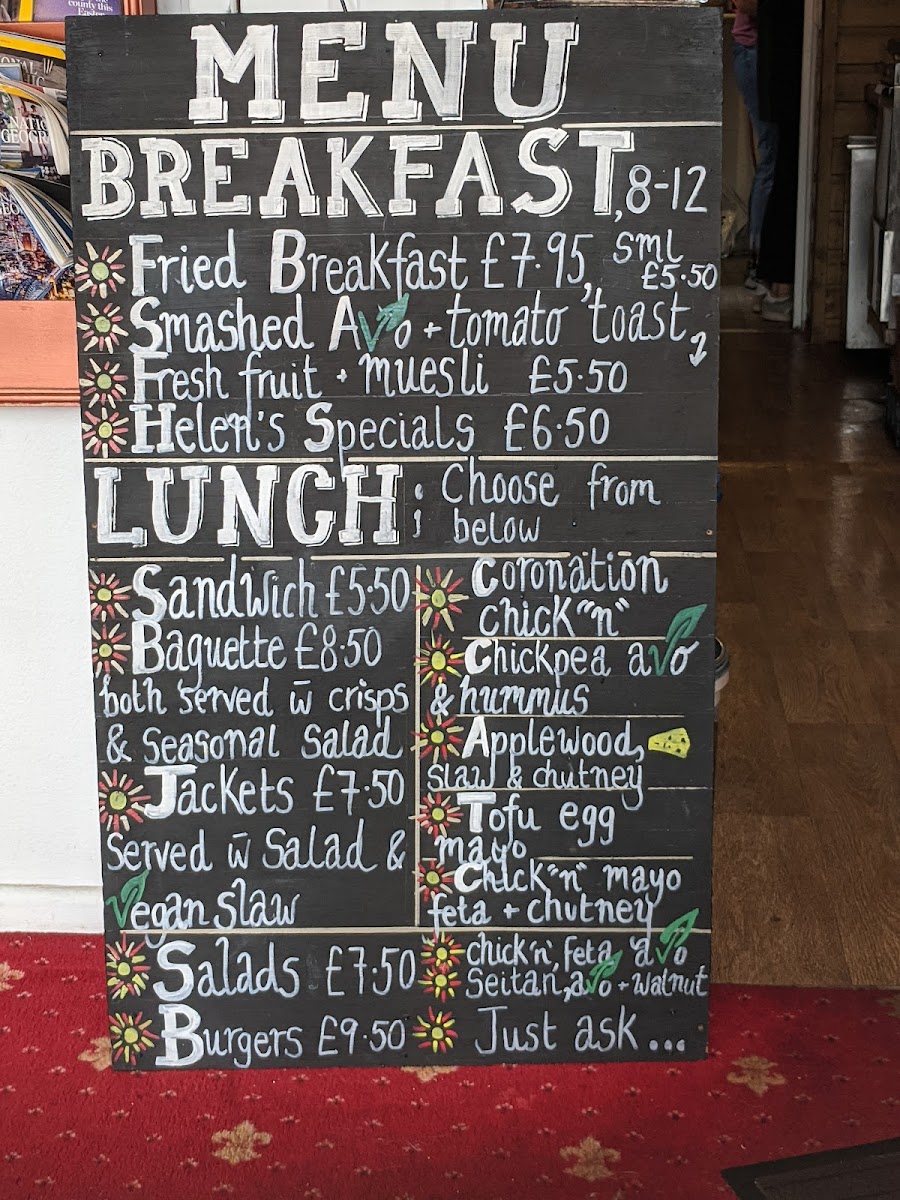 county this
Easter
NATIONAL
GEOGR
MENU
BREAKFAST, 8-12
Fried Breakfast £7.95, sml £5.50
Smashed Avo + tomato toast
Fresh fruit + muesli £5.50
Helen's Specials £6.50
LUNCH: Choose from
below
Sandwich £5.50
Baguette £8.50
both served w̄ crisps
& seasonal salad
Jackets £7.50
Served w̄ Salad &
Vegan slaw
Coronation
chick "n"
Chickpea avo
& hummus
Applewood,
slaw & chutney
Tofu egg
mayo
Chick "n" mayo
feta + chutney
Salads £7.50
chick'n', feta, avo
Seitan, avo + walnut
Burgers £9.50
Just ask ...